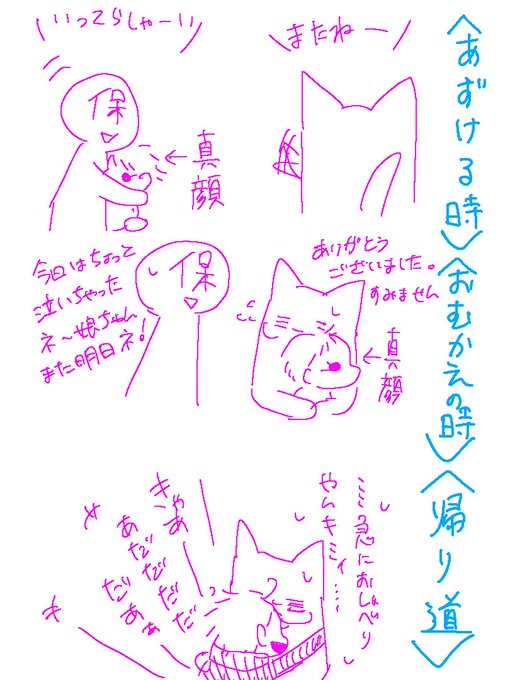 〈あずける時〉
またねー
いってらしゃーい
保
←真顔
〈おむかえの時〉
ありがとう
ございました。
すみません
←真顔
保
今日はちょって
泣いちゃった
ネ〜娘ちゃん
また明日ネ!
〈帰り道〉
急におしゃべり
やんキミィ…
きゃあ
あだだだだ
だあぁ